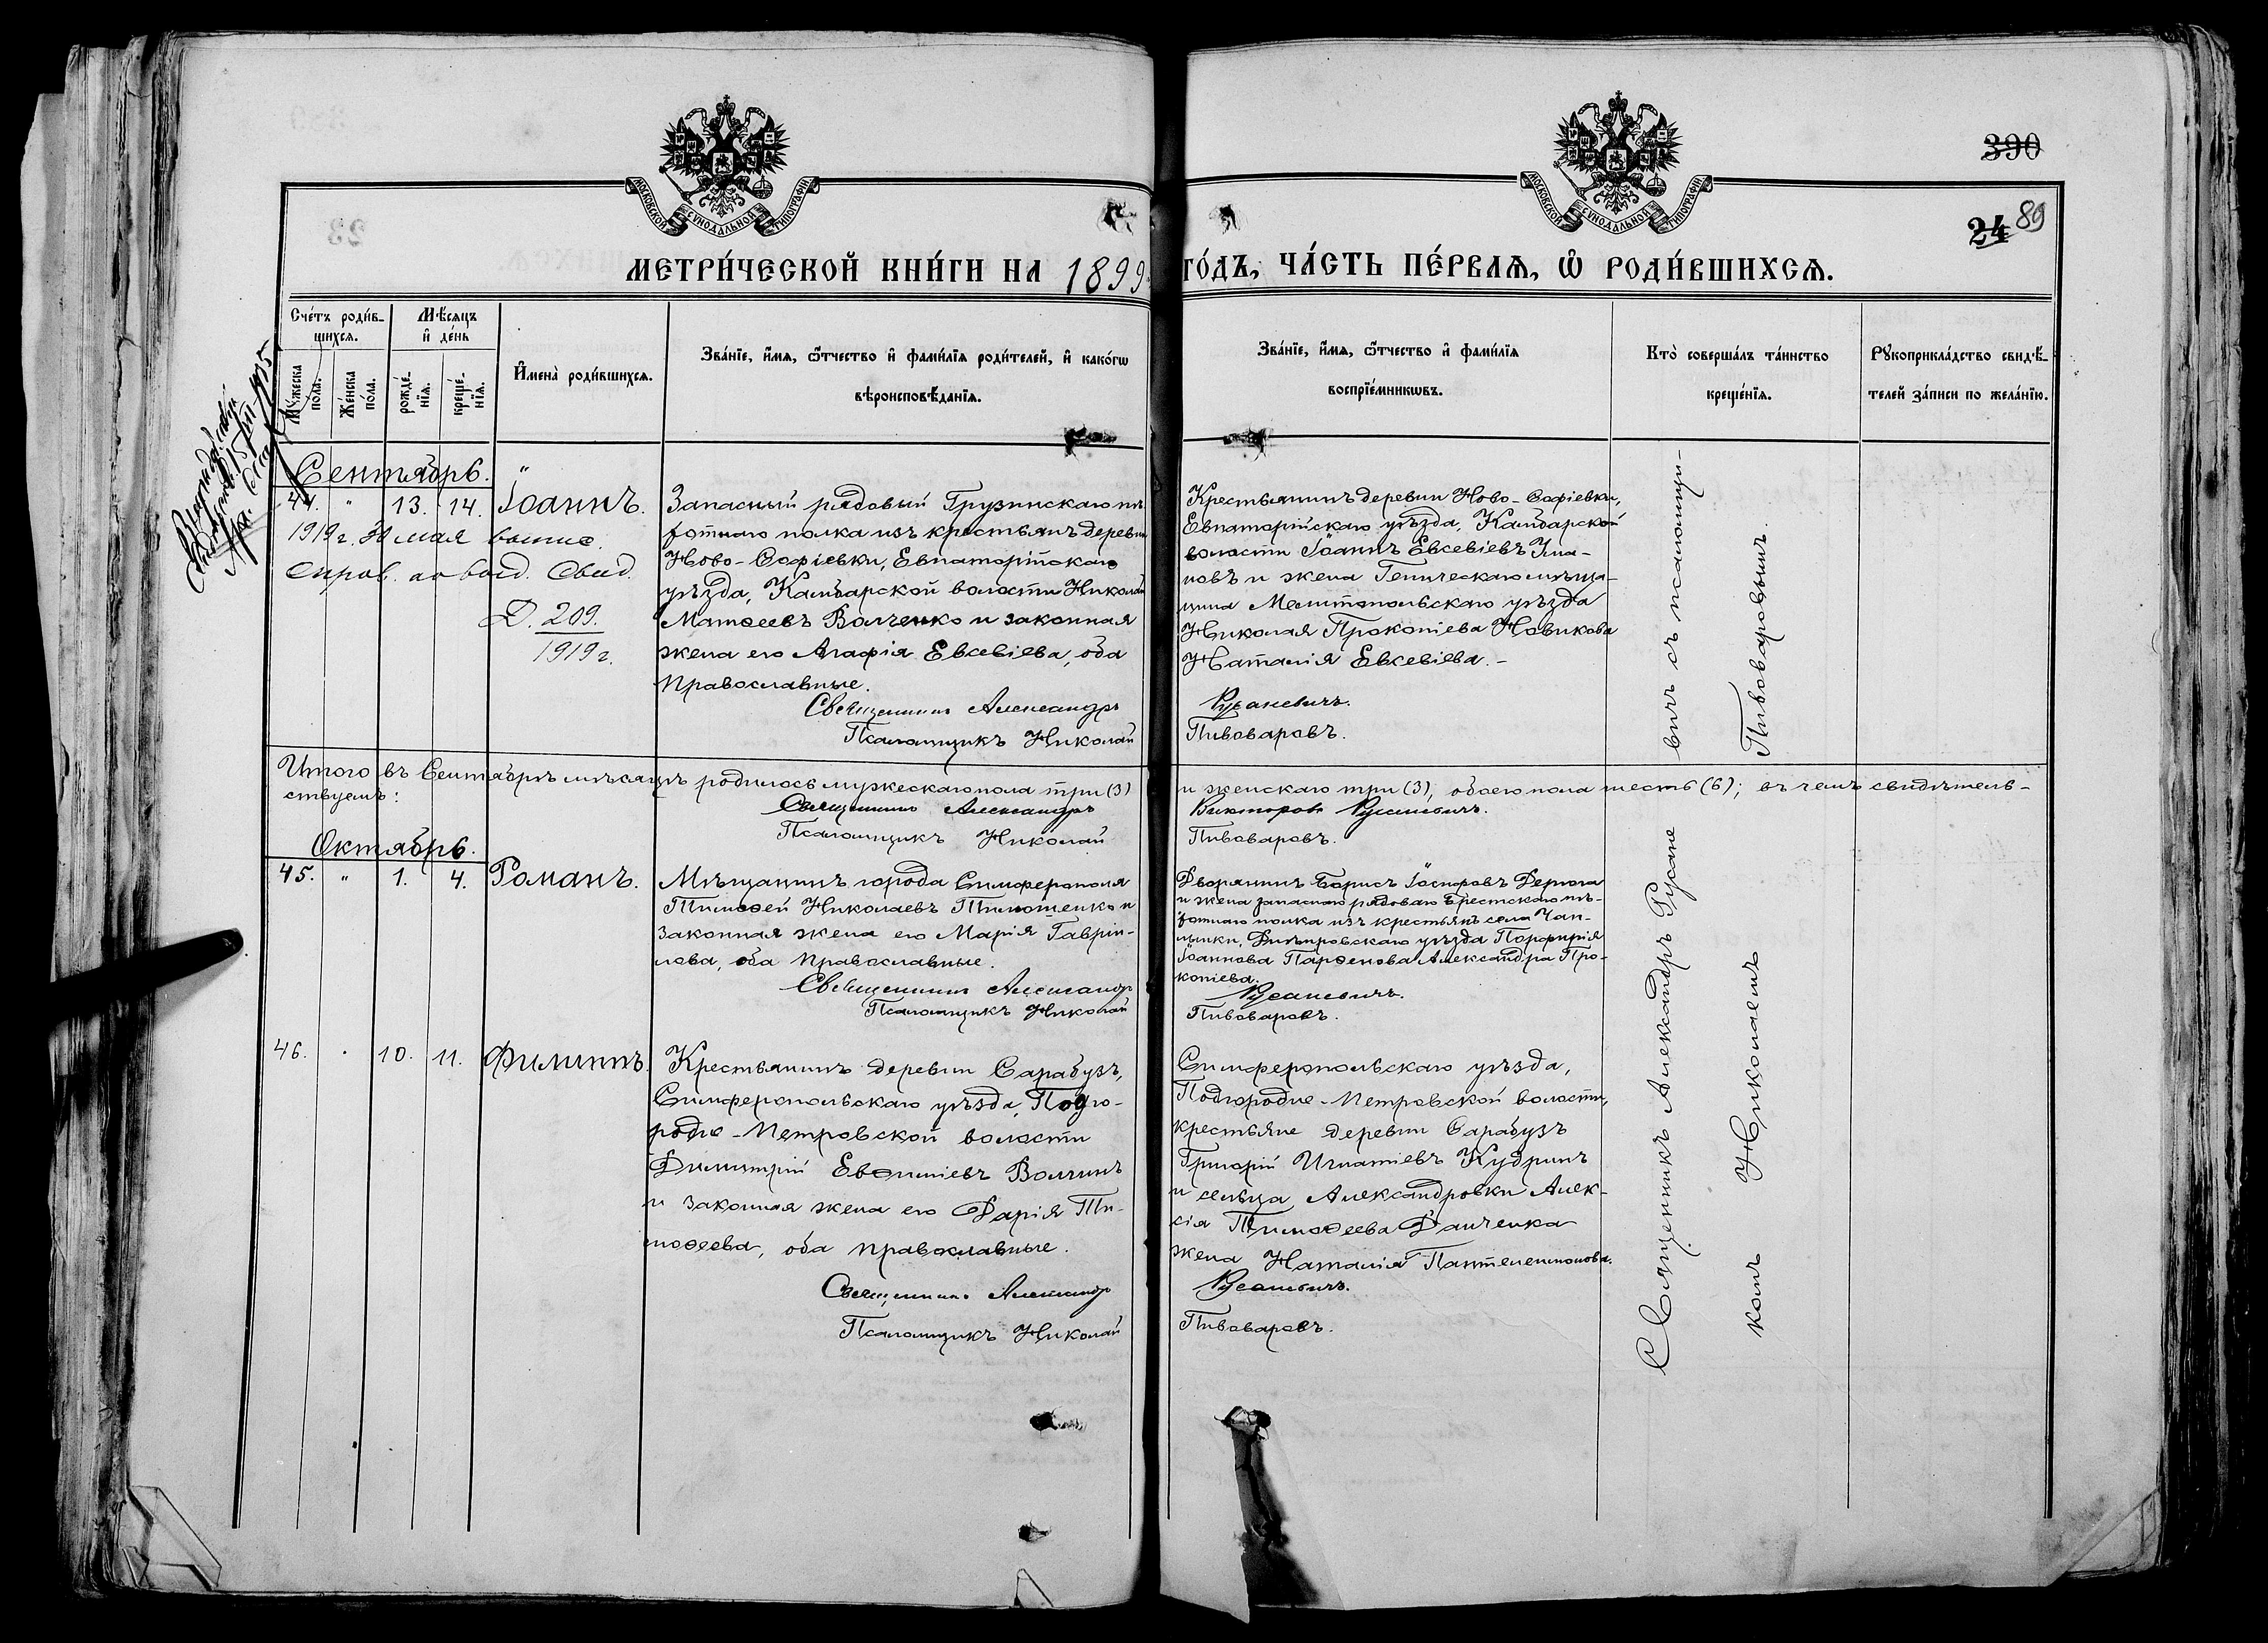 МОСКОВСКОЙ СѴНОДАЛЬНОЙ ТИПОГРАФІИ
МОСКОВСКОЙ СѴНОДАЛЬНОЙ ТИПОГРАФІИ
390
24 89
МЕТРИ́ЧЕСКОЙ КНИ́ГИ НА 1899
ГО́ДЪ, ЧА́СТЬ ПЕ́РВАѦ, Ѽ РОДИ́ВШИХСѦ.
Сче́тъ роди́в-
шихсѧ.
Мѣ́сѧцъ
и҆ де́нь
Мꙋ́жеска
по́ла.
Же́нска
по́ла.
рожде́-
нїѧ.
креще́-
нїѧ.
И҆мена̀ роди́вшихсѧ.
Зва́нїе, и҆́мѧ, ѻ҆́тчество и҆ фами́лїѧ роди́телей, и҆ како́гѡ
вѣроисповѣ́данїѧ.
Зва́нїе, и҆́мѧ, ѻ҆́тчество и҆ фами́лїѧ
воспрїе́мникѡвъ.
Кто̀ соверша́лъ та́инство
креще́нїѧ.
Рꙋкоприкла́дство свидѣ́-
телей за́писи по жела́нїю.
Сентябрь.
44. " 13. 14. Іоаннъ.
1919 г. 30 мая
Д. 209.
1919 г.
Запасный рядовый Грузинскаго пѣ-
хотнаго полка изъ крестьянъ деревни
Ново-Софіевки, Евпаторійскаго
уѣзда, Камбарской волости Николай
Матѳеевъ Волченко и законная
жена его Агафія Евсевіева, оба
православные.
Священникъ Александръ
Псаломщикъ Николай
Крестьянинъ деревни Ново-Софіевки,
Евпаторійскаго уѣзда, Камбарской
волости Іоаннъ Евсевіевъ
и жена Геническаго мѣща-
нина Мелитопольскаго уѣзда
Николая Прокопіева Новикова
Наталія Евсевіева.-
Русаневичъ.
Пивоваровъ.
Итого въ Сентябрѣ мѣсяцѣ родилось мужескаго пола три (3)
и женскаго три (3), обоего пола шесть (6); въ чемъ свидѣтель-
ствуемъ:
Священникъ Александръ
Викторовъ Русаневичъ.
Псаломщикъ Николай
Пивоваровъ.
Октябрь.
45. " 1. 4. Романъ.
Мѣщанинъ города Симферополя
Тимоѳей Николаевъ Тимошенко и
законная жена его Марія Гаврии-
лова, оба православные.
Священникъ Александръ
Псаломщикъ Николай
Дворянинъ Борисъ Іосифовъ Дерюга
и жена запаснаго рядоваго Брестскаго пѣ-
хотнаго полка изъ крестьянъ села Чап-
линки, Днѣпровскаго уѣзда Порфирія
Іоаннова Парѳенова Александра Про-
копіева.
Русаневичъ.
Пивоваровъ.
46. " 10. 11. Филиппъ.
Крестьянинъ деревни Сарабузъ,
Симферопольскаго уѣзда, Подго-
родне-Петровской волости
Димитрій Евѳиміевъ Волчинъ
и законная жена его Дарія Ти-
моѳеева, оба православные.
Священникъ Александръ
Псаломщикъ Николай
Симферопольскаго уѣзда,
Подгородне-Петровской волости,
крестьяне деревни Сарабузъ
Григорій Игнатіевъ Кудринъ
и сельца Александровки Алек-
сія Тимоѳеева Данченка
жена Наталія Пантелеимонова.
Русаневичъ.
Пивоваровъ.
Священникъ Александръ Русане
вичъ съ псаломщи-
комъ Николаемъ
Пивоваровымъ.